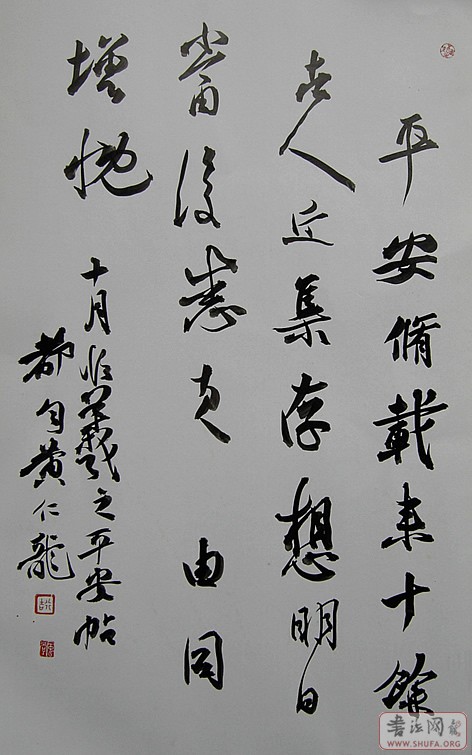 平安脩載来十餘
古人近集存想明日
當復悉无由同
增慨
十月临羲之平安帖
都匀黄仁龍
書法网
WWW.SHUFA.ORG